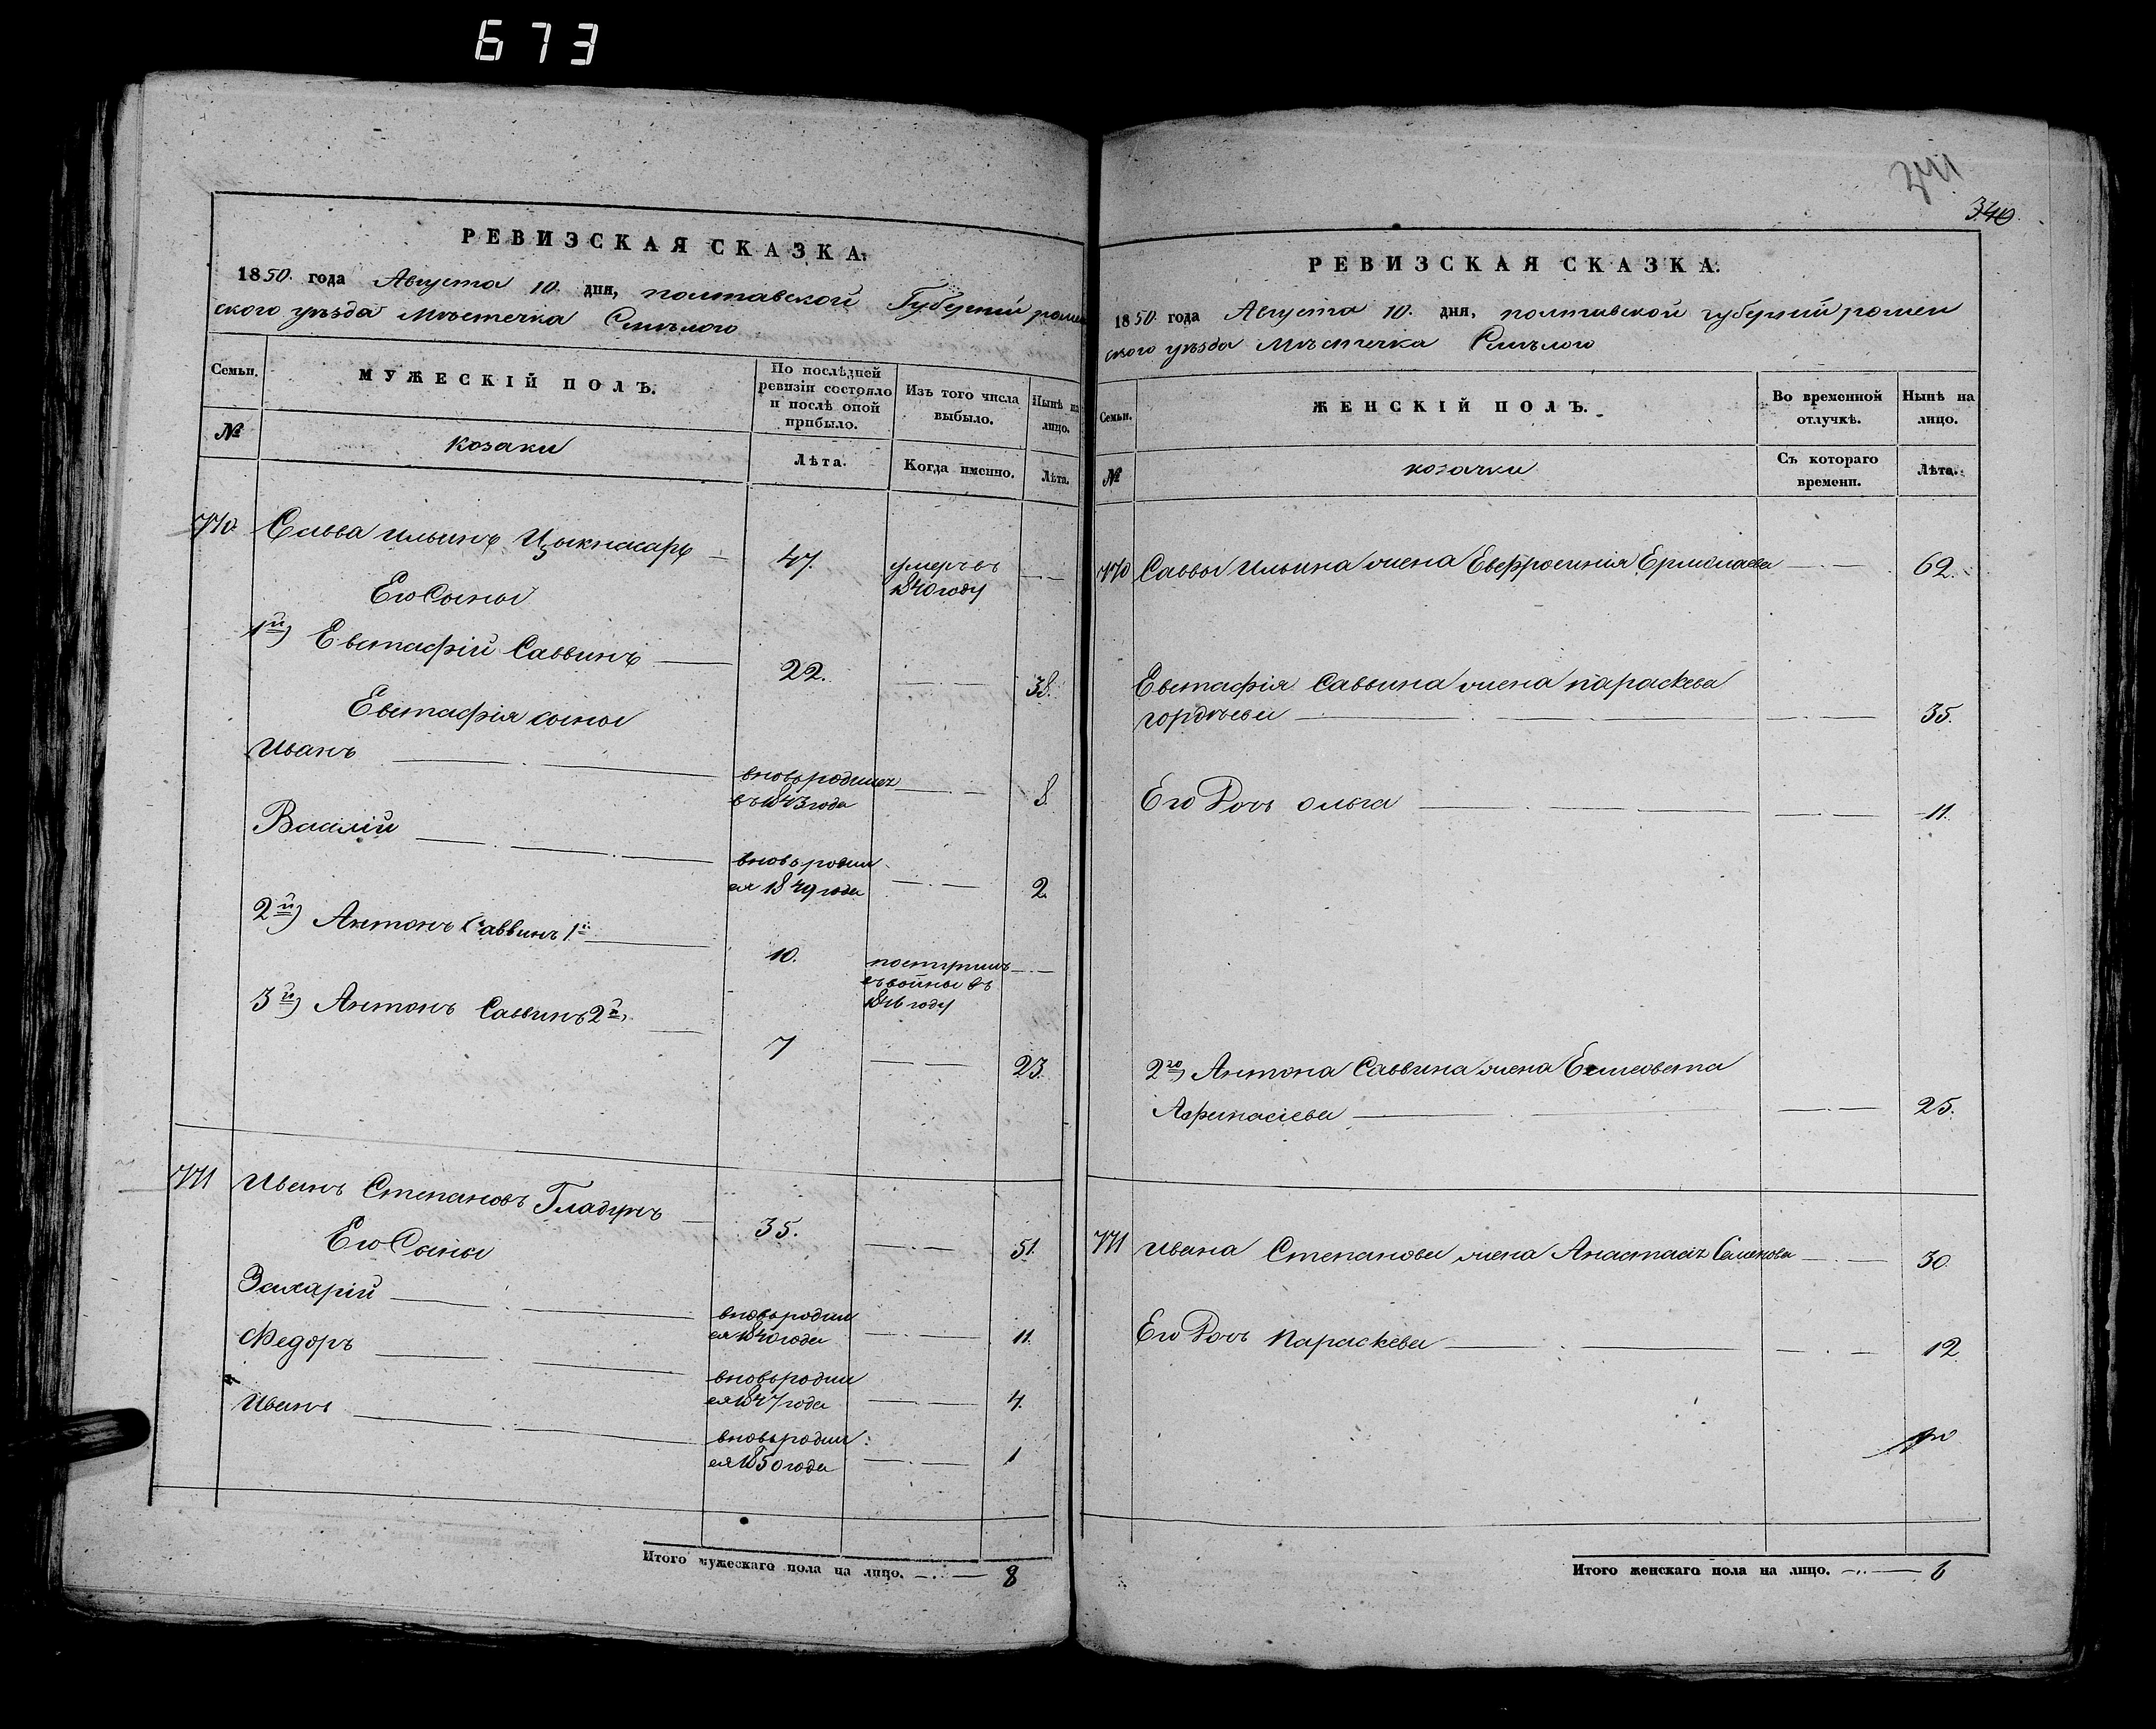 673
РЕВИЗСКАЯ СКАЗКА.
1850. года Августа 10. дня, полтавской Губерніи ромен
ского уѣзда Мѣстечка Смѣлого
Семьи.
МУЖЕСКІЙ ПОЛЪ.
По послѣдней ревизіи состояло и послѣ оной прибыло.
Изъ того числа выбыло.
Нынѣ на лицо.
№
козаки
Лѣта.
Когда именно.
Лѣта.
770 Савва ильинъ 47. умеръ въ
1840 году
Его Сыны
1й) Евстафій Саввинъ 22. 38.
Евстафія сыны
Иванъ вновь родился
въ 1843 года 8.
Василій вновь родил
ся 1849 года 2.
2й) Антонъ Саввинъ 1й 10. въ
1846 году
3й) Антонъ Саввинъ 2й 7 23.
771 Иванъ Степановъ Гладунъ 35. 51.
Его Сыны
Захарій вновь родил
ся 1840 года 11.
Федоръ вновь родил
ся 1847 года 4.
Иванъ вновь родил
ся 1850 года 1
Итого мужескаго пола на лицо. 8
340
РЕВИЗСКАЯ СКАЗКА.
1850 года Августа 10. дня, полтавской губерніи ромен
ского уѣзда Мѣстечка Смѣлого
Семьи.
ЖЕНСКІЙ ПОЛЪ.
Во временной отлучкѣ.
Нынѣ на лицо.
№
козачки
Съ котораго времени.
Лѣта.
770 Саввы Ильина жена Евфросинія Ермолаева 62.
Евстафія Саввина жена параскева
гордѣева 35.
Его Дочь ольга 11.
2го) Антона Саввина жена Елисовета
Афанасіева 25.
771 Ивана Степанова жена Анастасія Семенова 30.
Его Дочь Параскева 12.
Итого женскаго пола на лицо. 6